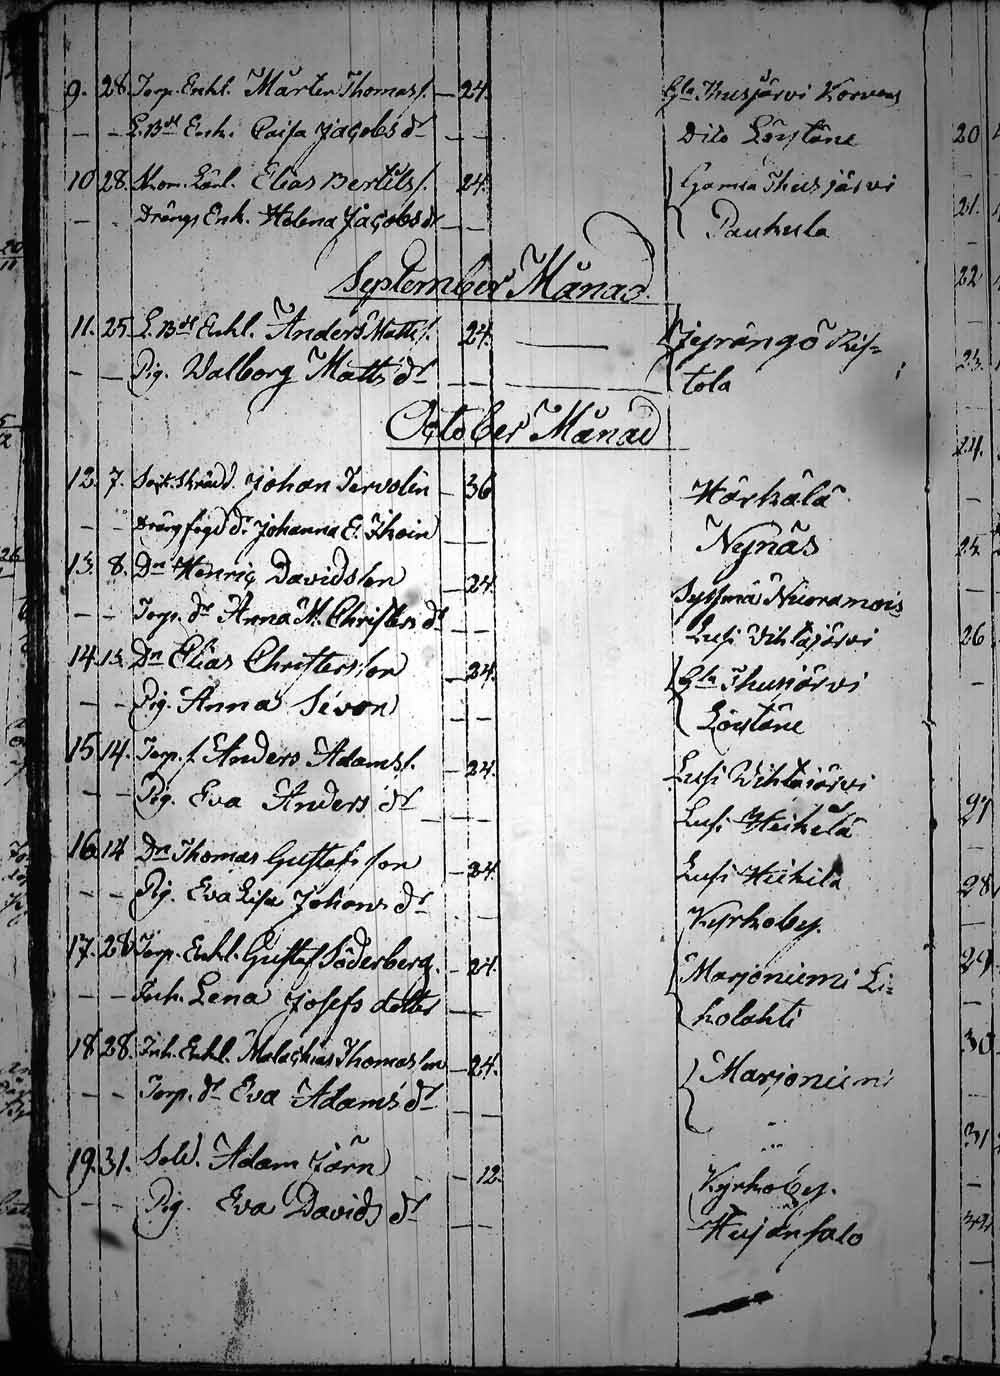 9. 28. Torp. Enkl. Mårten Thomass. — 24. Gla Thusjärvi Korvens
— — L.Bds Enk. Caisa Jacobs dr — — Dito Löytäne
10 28. Elias Bertils s. 24. Gamla Thusjärvi
— — Drängs Enk. Helena Jacobs dr — — Pauhula
September Månad.
11. 25 L.Bds Enkl. Anders Matts s. 24. — Jyrängö Ris=
— — Pig. Walborg Matts dr — — tola
October Månad
12. 7. Johan Tervolin — 36 Härkälä
— — Drängfogd dr Johanna E. Thein — — Nynäs
13. 8. Dn Henric Davidsson — 24. Syssmä Nuoramois
— — Torp. dr Anna M. Christers dr — — Lusi Vihtajärvi
14. 13. Dn Elias Christersson — 24. Gla Thusjärvi
— — Pig. Anna Sivon — — Löytäne
15 14. Torp. s. Anders Adamss. — 24. Lusi Vihtajärvi
— — Pig. Eva Anders dr — — Lusi Heikilä
16 14 Dn Thomas Gustafs son — 24. Lusi Heikilä
— — Pig. Eva Lisa Johans dr — — Kyrkoby.
17. 28 Torp. Enkl. Gustaf Söderberg. — 24. Marjoniemi Li=
— — Inh. Lena Josefs dotter — — kolahti
18 28. Inh. Enkl. Malachias Thomasson — 24. Marjoniemi
— — Torp. dr Eva Adams dr — —
19. 31. Sold. Adam Jörn — 12. Kyrkoby.
— — Pig. Eva Davids dr — — Hujansalo
20
21.
22
23.
24.
25.
26
27
28
29
30
31